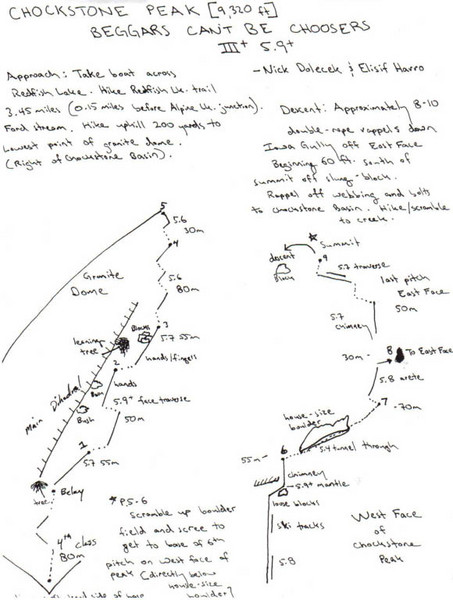 CHOCKSTONE PEAK [9,320 ft]
BEGGARS CAN'T BE CHOOSERS
III+ 5.9+
- Nick Dolecek & Elisif Harro
Approach: Take boat across
Redfish Lake. Hike Redfish Lk. trail
3.45 miles (0.15 miles before Alpine Lk. junction).
Ford stream. Hike uphill 200 yards to
lowest point of granite dome.
(Right of Chockstone Basin).
Descent: Approximately 8-10
double-rope rappels down
Iowa Gully off East Face
Beginning 60 ft. south of
summit off slung-block.
Rappel off webbing and bolts
to Chockstone Basin. Hike/scramble
to creek.
5
5.6
30m
4
5.6
80m
Granite
Dome
Blocks
3
5.7 55m
leaning
tree
2
hands/fingers
hands
5.9+ face traverse
50m
Bush
Main Dihedral
1
5.7 55m
tree
Belay
4th class
80m
* P.5-6
Scramble up boulder
field and scree to
get to base of 6th
pitch on West face of
peak (directly below
house-size
boulder)
Summit
descent
Block
9
5.7 traverse
last pitch
East Face
50m
5.7
chimney
30m
8
To East Face
5.8 arete
7
70m
house-size
boulder
5.4 tunnel through
6
55m
chimney
5.9+ mantle
loose blocks
ski tracks
5.8
West Face
of
Chockstone
Peak